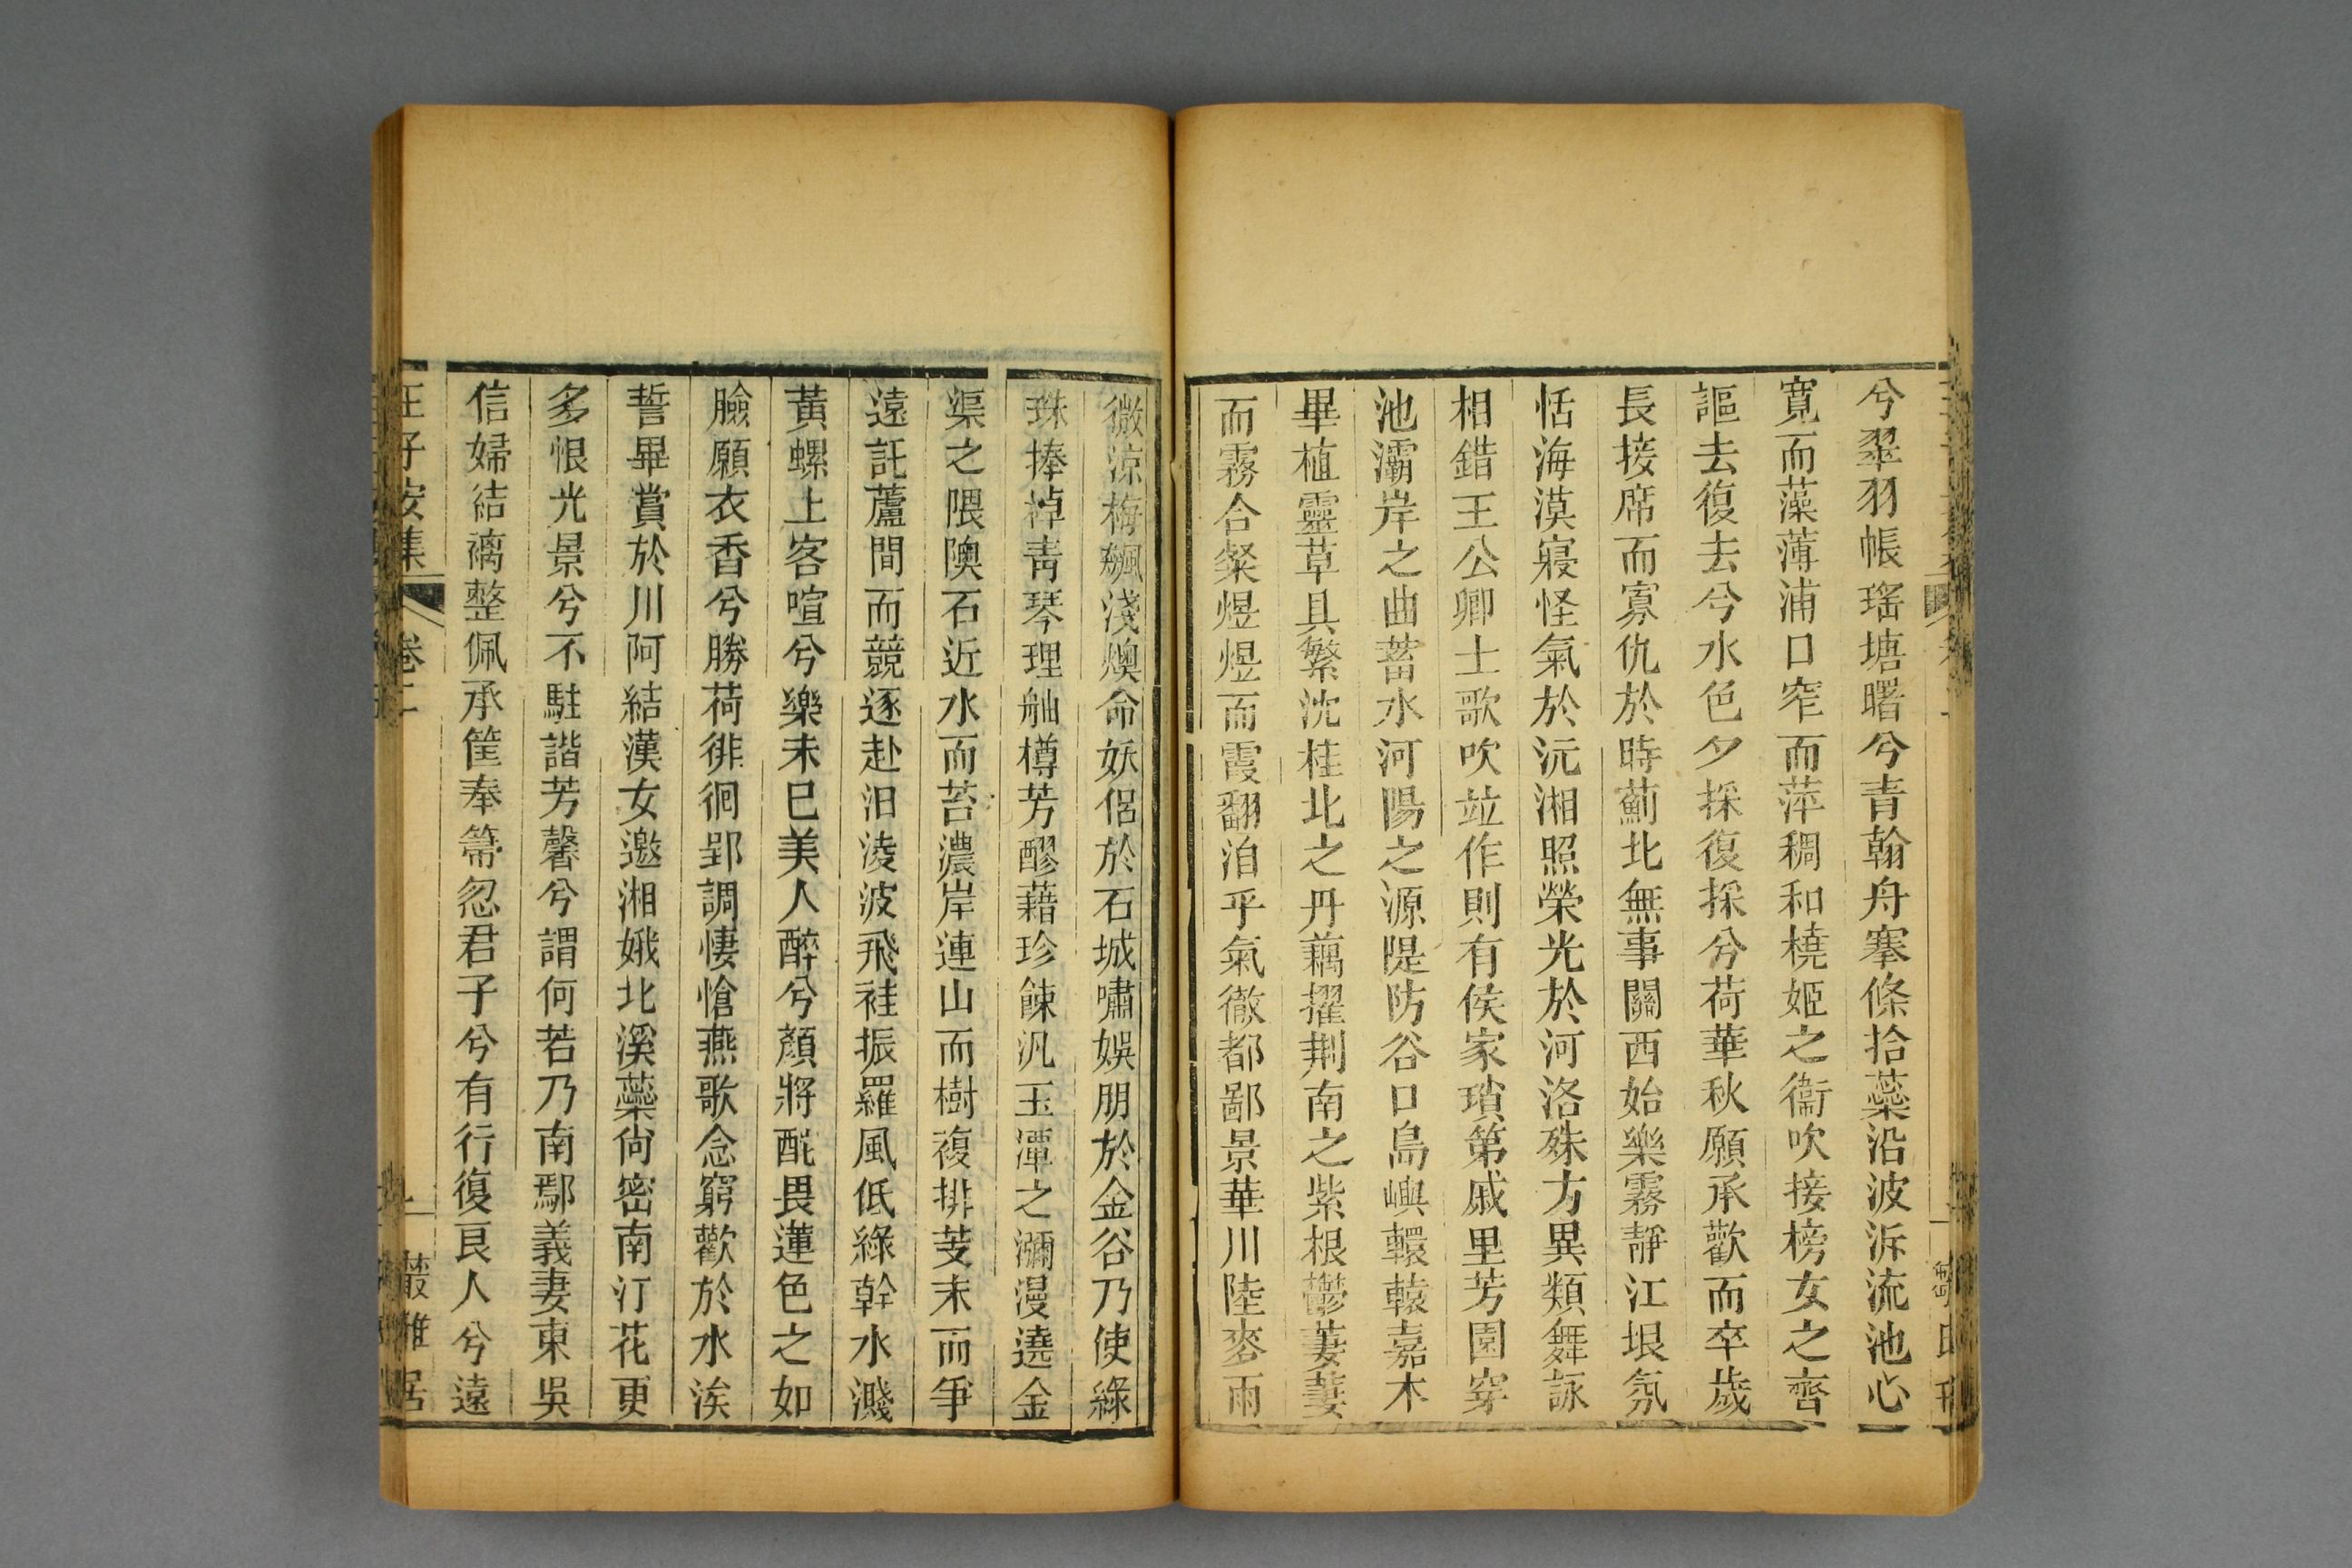 兮翠羽帳瑤塘曙兮青翰舟搴條拾蘂沿波泝流池心
寬而藻薄浦口窄而萍稠和橈姬之衞吹接榜女之齊
謳去復去兮水色夕採復採兮荷華秋願承歡而卒歲
長接席而寡仇於時薊北無事關西始樂霧靜江垠氛
恬海漠寢怪氣於沅湘照榮光於河洛殊方異類舞詠
相錯王公卿士歌吹竝作則有侯家瑣第戚里芳園穿
池灞岸之曲蓄水河陽之源隄防谷口島嶼轘轅嘉木
畢植靈草具繁沈桂北之丹藕擢荆南之紫根鬱萋萋
而霧合粲煜煜而霞翻洎乎氣徹都鄙景華川陸麥雨
微涼梅颸淺燠命妖侶於石城嘯娛朋於金谷乃使綠
珠捧棹靑琴理舳樽芳醪藉珍餗汎玉潭之瀰漫遶金
渠之隈隩石近水而苔濃岸連山而樹複排芰末而爭
遠託蘆間而競逐赴汨淩波飛袿振羅風低綠幹水濺
黃螺上客喧兮樂未巳美人醉兮顏將酡畏蓮色之如
臉願衣香兮勝荷徘徊郢調悽愴燕歌念窮歡於水涘
誓畢賞於川阿結漢女邀湘娥北溪蘂尙密南汀花更
多恨光景兮不駐諧芳馨兮謂何若乃南鄢義妻東吳
信婦結褵整佩承筐奉箒忽君子兮有行復良人兮遠
王子安集 卷二 叢雅居